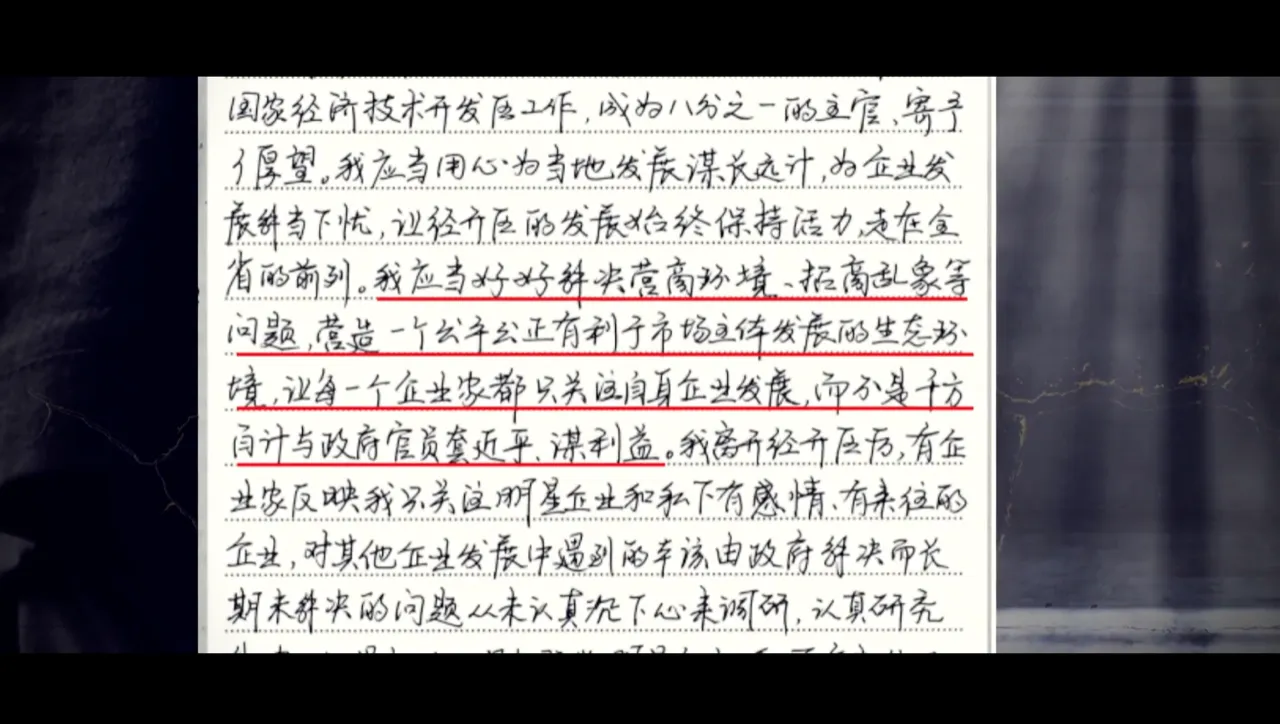 国家经济技术开发区工作,成为八分之一的主官、寄予
了厚望。我应当用心为当地发展谋长远计,为企业发
展解当下忧,让经开区的发展始终保持活力,走在全
省的前列。我应当好好解决营商环境、招商乱象等
问题,营造一个公平公正有利于市场主体发展的生态环
境,让每一个企业家都只关注自身企业发展,而不是千方
百计与政府官员套近乎、谋利益。我离开经开区后,有企
业家反映我只关注明星企业和私下有感情、有来往的
企业,对其他企业发展中遇到的本该由政府解决而长
期未解决的问题从未认真沉下心来调研,认真研究